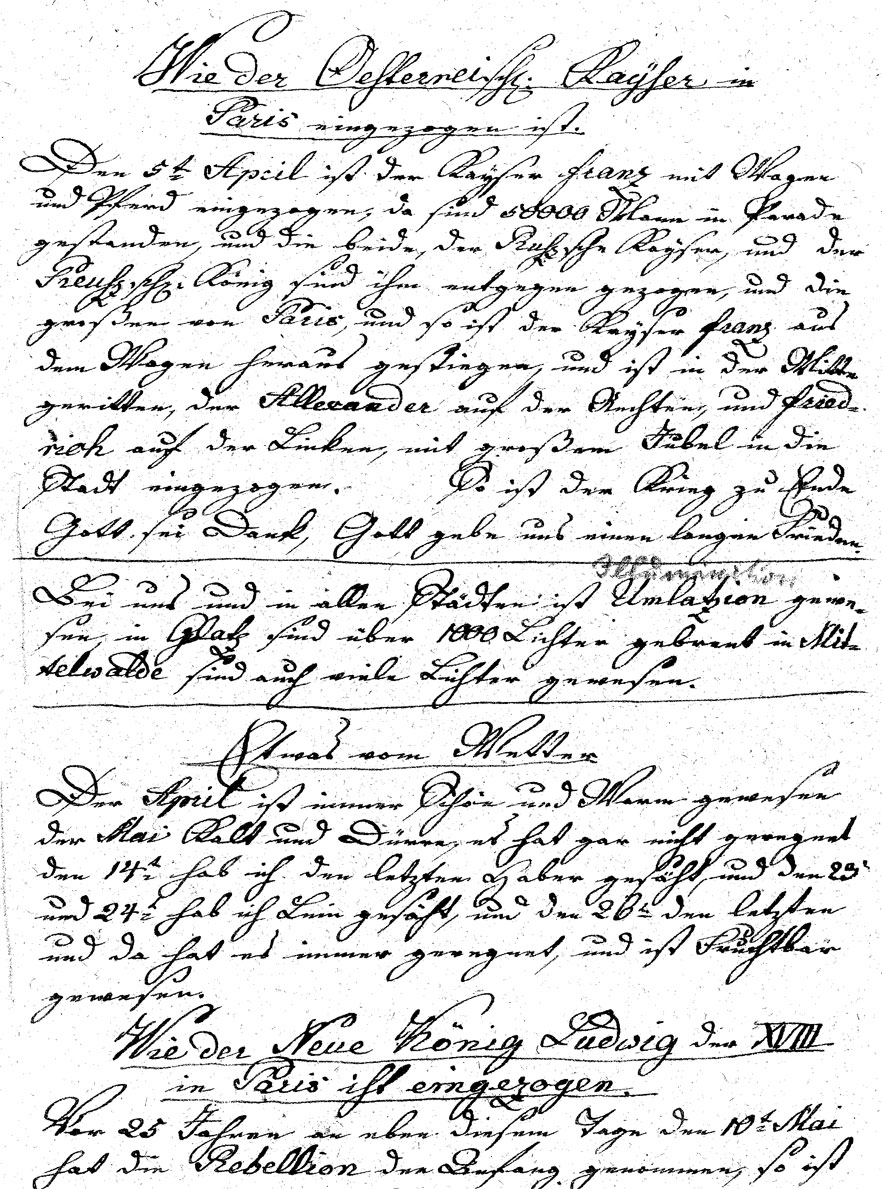 Wie der Oesterreisch: Kaÿser in
Paris eingezogen ist.
Den 5t April ist der Kaÿser Franz mit Wagen
und Pferd eingezogen, da sind 50000 Mann in Parade
gestanden, und die beide, der Rußzsche Kaÿser, und der
Preußzsch: König sind ihm entgegen gezogen, und die
großen von Paris, und so ist der Kaÿser Franz aus
dem Wagen heraus gestiegen, und ist in der Mitte
geritten, der Allexander auf der Rechten, und Fried-
rich auf der Linken, mit großem Jubel in die
Stadt eingezogen. So ist der Krieg zu Ende
Gott sei Dank, Gott gebe uns einen langen Frieden.
Illumination
Bei uns und in allen Städten ist Umlazion gewe-
sen, in Glatz sind über 1000 Lichter gebrent in Mit-
telwalde sind auch viele Lichter gewesen.
Etwas vom Wetter
Der April ist immer Schön und Warm gewesen
der Mai Kalt und Dürre, es hat gar nicht geregnet
den 14t hab ich den letzten Haber gesäht, und den 23t
und 24t hab ich Lein gesäht, und den 26t den letzten
und da hat es immer geregnet, und ist Fruchtbar
gewesen.
Wie der Neue König Ludwig der XVIII
in Paris ist eingezogen.
Vor 25 Jahren an eben diesem Tage den 10t Mai
hat die Rebellion den Anfang genommen, so ist